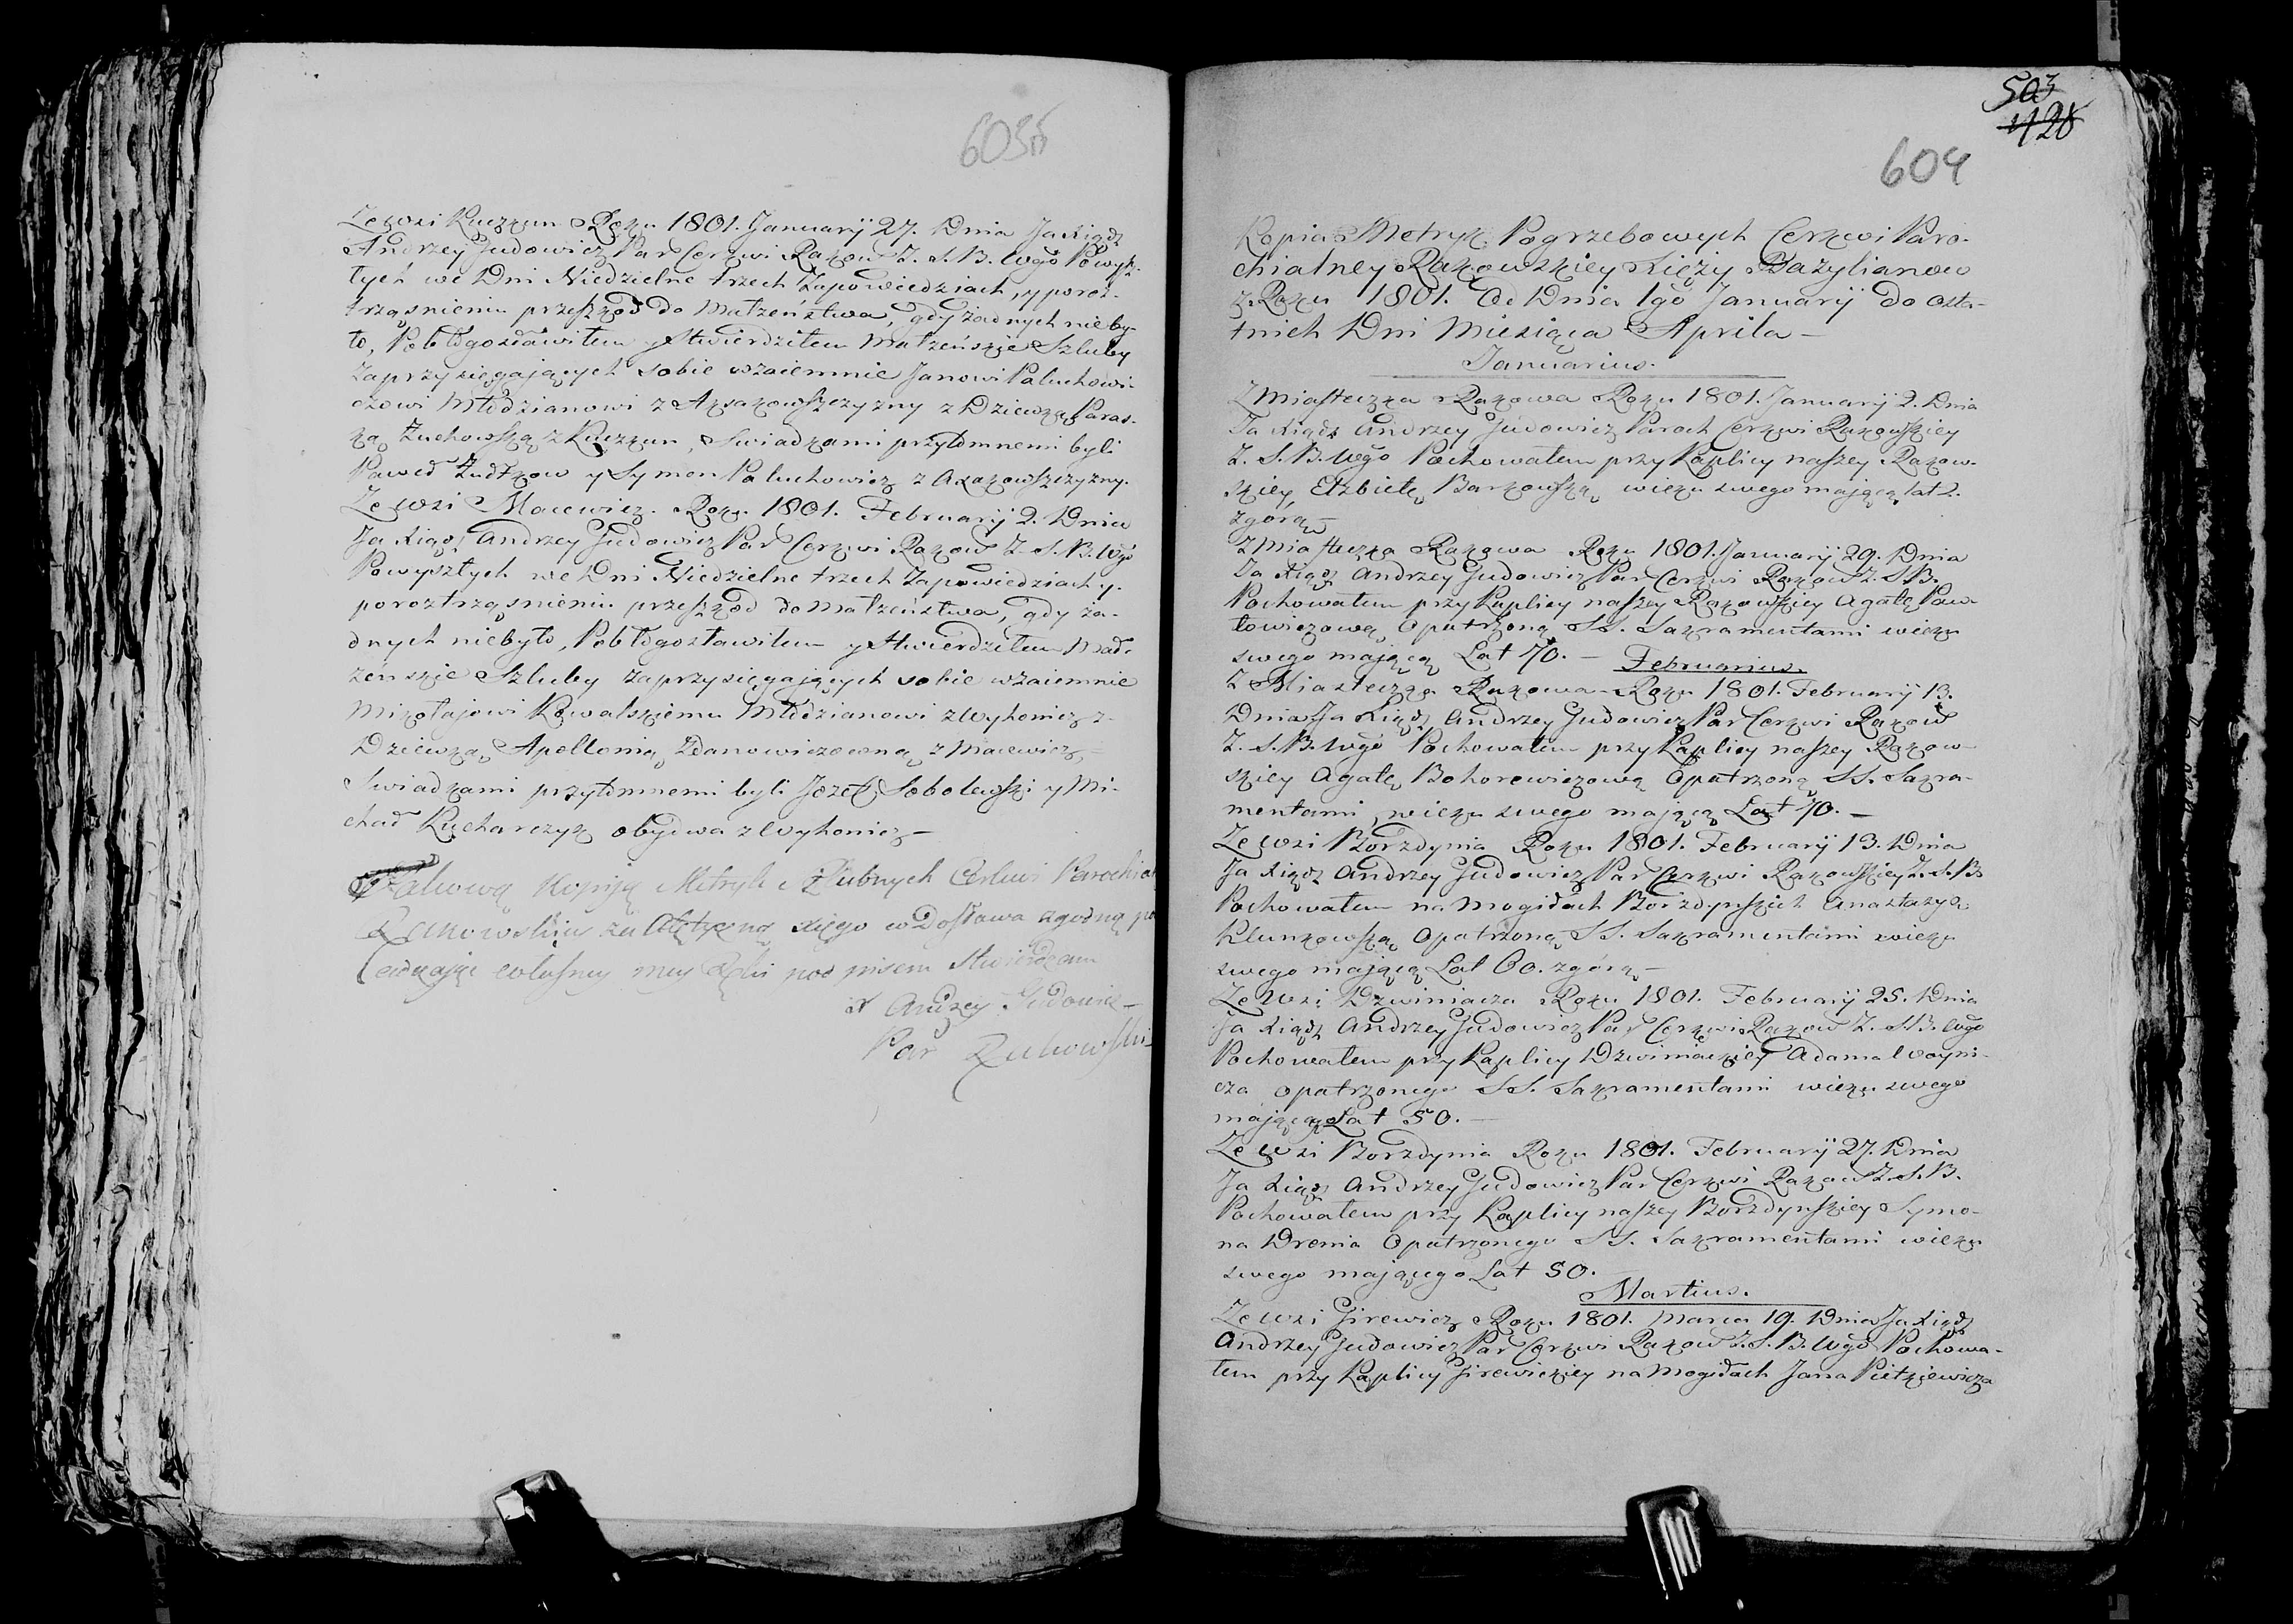 603об
Ze wsi Kuczkun Roku 1801. January 27. Dnia Ja Xiądz
Andrzey Judowicz Par Cerkwi Rakow Z. S. B. Wgo Powysz-
łych we Dni Niedzielne trzech Zapowiedziach, y poroz-
trząsnieniu przeszkod do małżeństwa, gdy żadnych nieby-
ło, Pobłogosławiłem y Stwierdziłem Małżeńskie Szluby
zaprzysięgających sobie wzaiemnie Janowi Paluchowi-
czowi Młodzianowi z Aksakowszczyzny z Dziewką Paras-
ką Żuchowską z Kuczkun, Swiadkami przytomnemi byli
Paweł Żudkow y Symon Paluchowicz z Axakowszczyzny.
Ze wsi Macewicz. Roku 1801. February 2. Dnia
Ja Xiądz Andrzey Judowicz Par Cerkwi Rakow Z. S. B. Wgo
Powyszłych we Dni Niedzielne trzech Zapowiedziach y
poroztrząsnieniu przeszkod do małżeństwa, gdy ża-
dnych niebyło, Pobłogosławiłem y Stwierdziłem Mał-
żeńskie Szluby zaprzysięgających sobie wzaiemnie
Mikołajowi Kowalskiemu Młodzianowi z Wyhonicz z
Dziewką Apollonią Zdanowiczowną z Macewicz,
Swiadkami przytomnemi byli Jozef Sobolewski y Mi-
chał Kucharczyk obydwa z Wyhonicz
Takową Kopiją Metryk Szlubnych Cerkwi Parochial
Rakowskiey za xięgo w zgodną
własney mey Ręki pod pisem Stwierdzam
X Andrzey Judowicz
Par Rakowski
503
428
604
Kopia Metryk Pogrzebowych Cerkwi Paro-
chialney Rakowskiey Xięży Bazylianow
z Roku 1801. Od Dnia 1go January do osta-
tnich Dni Miesiąca Aprila
Januarius.
Z Miasteczka Rakowa Roku 1801. January 2. Dnia
Ja Xiądz Andrzey Judowicz Paroch Cerkwi Rakowskiey
Z. S. B. Wgo Pochowałem przy Kaplicy naszey Rakow-
skiey Elzbietę Barkowską wieku swego mającą lat 2.
z górą
Z Miasteczka Rakowa Roku 1801. January 29. Dnia
Ja Xiądz Andrzey Judowicz Par Cerkwi Rakow Z. S. B.
Pochowałem przy Kaplicy naszey Rakowskiey Agatę Paw-
łowiczową Opatrzoną SS. Sakramentami wieku
swego mającą Lat 70. — Februarius.
Z Miasteczka Rakowa Roku 1801. February 13.
Dnia Ja Xiądz Andrzey Judowicz Par Cerkwi Rakow
Z. S. B. Wgo Pochowałem przy Kaplicy naszey Rakow-
skiey Agatę Bohorewiczową Opatrzoną SS. Sakra-
mentami, wieku swego mającą Lat 70. —
Ze wsi Borzdynia Roku 1801. February 13. Dnia
Ja Xiądz Andrzey Judowicz Par Cerkwi Rakowskiey Z. S. B.
Pochowałem na Mogiłach Borzdynskich Anastazyą
Klunkowską Opatrzoną SS. Sakramentami wieku
swego mającą Lat 60. z górą —
Ze Wsi Dzwiniacza Roku 1801. February 25. Dnia
Ja Xiądz Andrzey Judowicz Par Cerkwi Rakow Z. S. B. Wgo
Pochowałem przy Kaplicy Dzwiniackiey Adama Woyni-
cza opatrzonego SS. Sakramentami wieku swego
mającego Lat 50. —
Ze wsi Borzdynia Roku 1801. February 27. Dnia
Ja Xiądz Andrzey Judowicz Par Cerkwi Rakow Z. S. B.
Pochowałem przy Kaplicy naszey Borzdynskiey Symo-
na Drenia Opatrzonego SS. Sakramentami wieku
swego mającego Lat 50.
Martius.
Ze wsi Girewicz Roku 1801. Marca 19. Dnia Ja Xiądz
Andrzey Judowicz Par Cerkwi Rakow Z. S. B. Wgo Pochowa-
łem przy Kaplicy Girewickiey na Mogiłach Jana Pietkiewicza